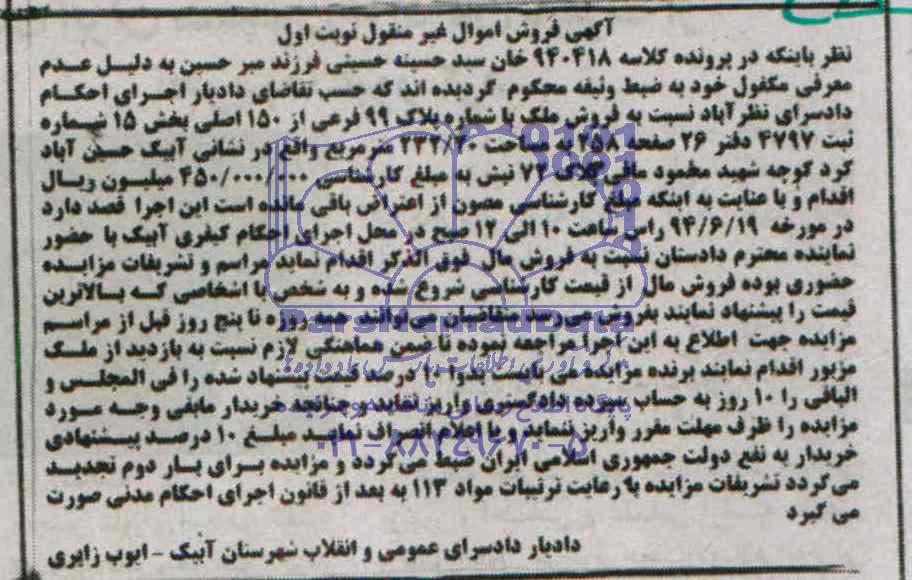 آگهی فروش اموال غیر منقول نوبت اول
نظر باینکه در پرونده کلاسه ۹۴۰۴۱۸ خان سید حسینه حسینی فرزند میر حسین به دلیل عدم
معرفی مکفول خود به ضبط وثیقه محکوم گردیده اند که حسب تقاضای دادیار اجرای احکام
دادسرای نظرآباد نسبت به فروش ملک با شماره پلاک ۹۹ فرعی از ۱۵۰ اصلی بخش ۱۵ شماره
ثبت ۴۷۹۷ دفتر ۲۶ صفحه ۲۵۸ به مساحت ۲۳۲/۲۰ متر مربع واقع در نشانی آبیک حسین آباد
کرد کوچه شهید محمود مافی پلاک ۷۲ نبش به مبلغ کارشناسی ۴۵۰/۰۰۰/۰۰۰ میلیون ریال
اقدام و با عنایت به اینکه مبلغ کارشناسی مصون از اعتراض باقی مانده است این اجرا قصد دارد
در مورخه ۹۴/۶/۱۹ راس ساعت ۱۰ الی ۱۲ صبح در محل اجرای احکام کیفری آبیک با حضور
نماینده محترم دادستان نسبت به فروش مال فوق الذکر اقدام نماید مراسم و تشریفات مزایده
حضوری بوده فروش مال از قیمت کارشناسی شروع شده و به شخص یا اشخاصی که بالاترین
قیمت را پیشنهاد نمایند بفروش می رسد متقاضیان می توانند همه روزه تا پنج روز قبل از مراسم
مزایده جهت اطلاع به این اجرا مراجعه نموده تا ضمن هماهنگی لازم نسبت به بازدید از ملک
مزبور اقدام نمایند برنده مزایده می بایست بدوا ۱۰ درصد قیمت پیشنهاد شده را فی المجلس و
الباقی را ۱۰ روز به حساب سپرده دادگستری واریز نماید و چنانچه خریدار مابقی وجه مورد
مزایده را ظرف مهلت مقرر واریز ننماید و یا اعلام انصراف نماید مبلغ ۱۰ درصد پیشنهادی
خریدار به نفع دولت جمهوری اسلامی ایران ضبط می گردد و مزایده برای بار دوم تجدید
می گردد تشریفات مزایده با رعایت ترتیبات مواد ۱۱۳ به بعد از قانون اجرای احکام مدنی صورت
می گیرد
دادیار دادسرای عمومی و انقلاب شهرستان آبیک - ایوب زایری
ParsNamadData
۰۲۱-۸۸۳۴۹۶۷۰-۵